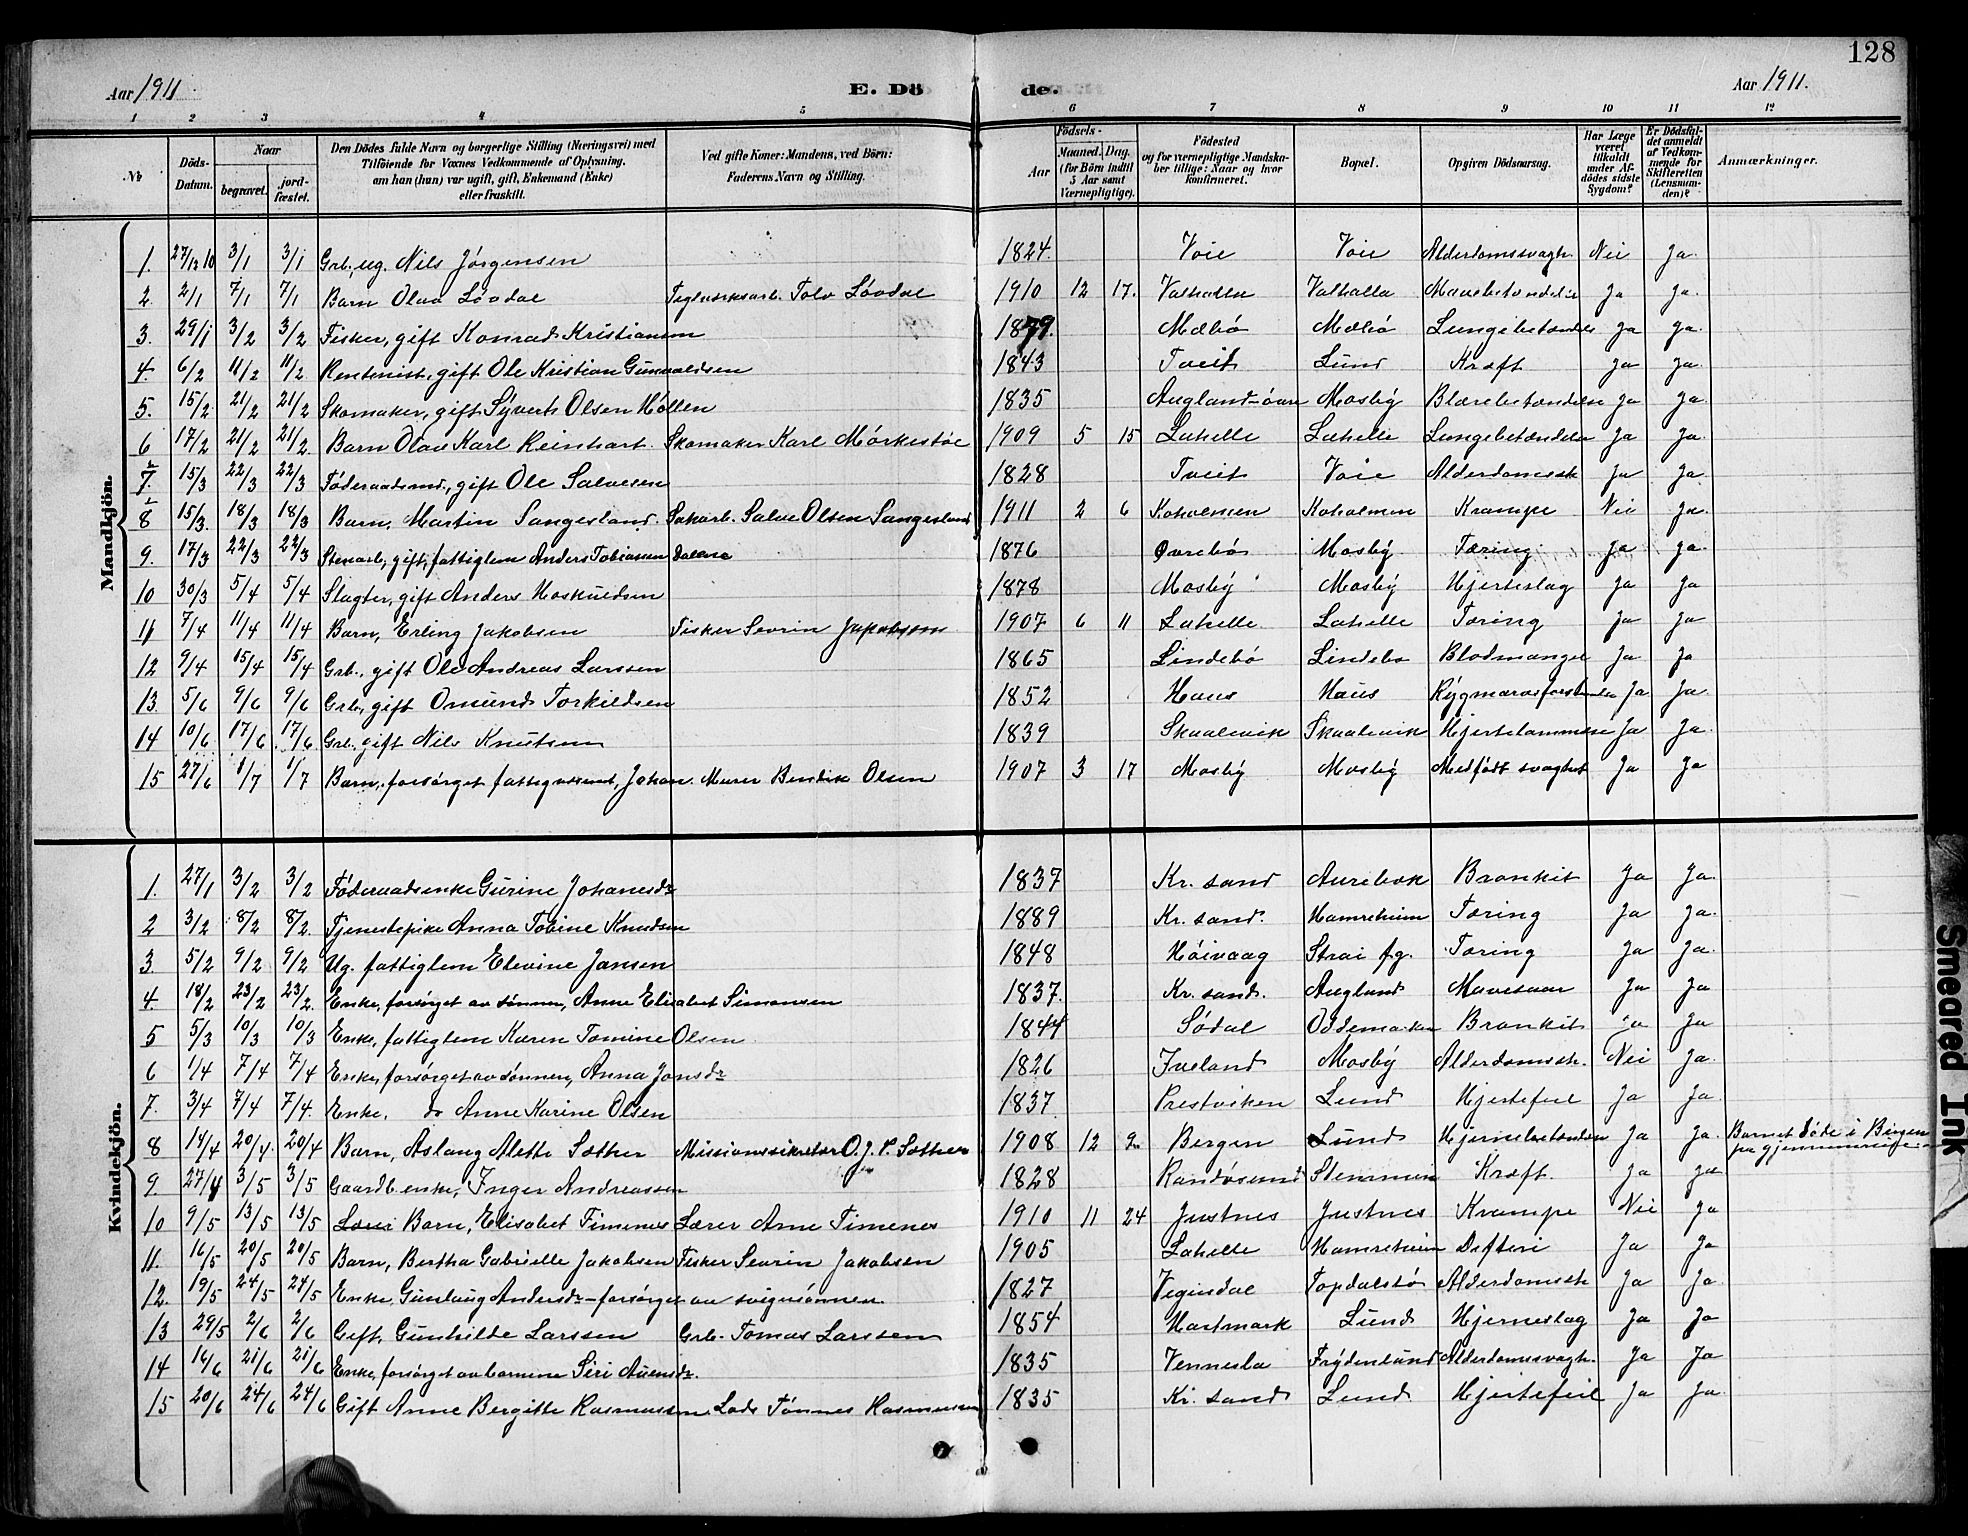 128
Aar 1911. E. Döde. Aar 1911.
1 2 3 4 5 6 7 8 9 10 11 12
№ Döds-Datum. Naar begravet. jordfæstet. Den Dödes fulde Navn og borgerlige Stilling (Næringsvei) med Tilföiende for Voxnes Vedkommende af Oplysning, om han (hun) var ugift, gift, Enkemand (Enke) eller fraskilt. Ved gifte Koner: Mandens, ved Börn: Faderens Navn og Stilling. Födsels- Aar Maaned. Dag. (for Börn indtil 5 Aar samt Værnepligtige). Födested og for værnepligtige Mandskaber tillige: Naar og hvor konfirmeret. Bopæl. Opgiven Dödsaarsag. Har Læge været tilkaldt under Afdödes sidste Sygdom? Er Dödsfaldet anmeldt af Vedkommende for Skifteretten (Lensmanden)? Anmærkninger.
Mandkjön.
1. 27/12 10 3/1 3/1 Grb., ug. Nils Jørgensen 1824. Voie Voie Alderdomssvagh. Nei Ja.
2. 2/1 7/1 7/1 Barn Olav Løvdal Teglverksarb. Tolv Løvdal 1910 12 17. Valhalla Valhalla Mavebetændelse Ja Ja.
3. 29/1 3/2 3/2 Fisker, gift Konrad Kristiansen 1879. Mæbø Mæbø Lungebetændelse Ja Ja.
4. 6/2 11/2 11/2 Rentenist, gift Ole Kristian Gunvaldsen 1843 Tveit Lund Kræft Ja Ja.
5. 15/2 21/2 21/2 Skomaker, gift Syvert Olsen Høllen 1835 Augland-øen Mosby Blærebetændelse Ja Ja.
6 17/2 21/2 21/2. Barn Olav Karl Reinhart. Skomaker Karl Mørkestøl 1909 5 15 Lahelle Lahelle Lungebetændelse Ja Ja.
7. 15/3 22/3 22/3 Føderaadsmd., gift Ole Salvesen 1828 Tveit Voie Alderdomssv. Ja Ja.
8 15/3. 18/3 18/3 Barn, Martin Sangesland. Sakarb. Salve Olsen Sangesland 1911 2 6 Koholmen Koholmen Krampe Nei Ja.
9. 17/3 22/3 22/3 Stenarb., gift, fattiglem Anders Tobiassen Dalene 1876 Øvrebø Mosby Tæring. Ja Ja.
10 30/3 5/4 5/4 Slagter, gift Anders Hoskuldsen 1878 Mosby Mosby Hjerteslag Ja Ja
11 7/4 11/4 11/4 Barn, Erling Jakobsen Fisker Sevrin Jakobsen 1907 6 11 Lahelle Lahelle Tæring Ja Ja
12 9/4 15/4 15/4 Grb., gift Ole Andreas Larssen 1865 Lindebø Lindebø Blodmangel Ja Ja
13. 5/6 9/6 9/6 Grb., gift Omund Torkildsen 1852 Haus Haus Ja Ja.
14 10/6 17/6 17/6 Grb. gift Nils Knutsen 1839 Skaalevik Skaalevik Hjertelammelse Ja Ja.
15 27/6 1/7 1/7 Barn, forsørget fattigvæsnet, Johan. Murer Bendik Olsen 1907 3 17 Mosby Mosby Medfødt svaghet Ja Ja
Kvindekjön.
1. 27/1 3/2 3/2 Føderaadsenke Gurine Johanesdr. 1837 Kr. sand Aurebæk Bronkit Ja Ja.
2 3/2 8/2 8/2. Tjenestepike Anna Tobine Knudsen 1889 Kr. sand. Hamreheim Tæring Ja Ja.
3. 5/2 9/2 9/2 Ug. fattiglem Elevine Jansen 1848 Høivaag Strai fg. Tæring Ja Ja.
4. 18/2 23/2 23/2. Enke, forsørget av sønnen, Anne Elisabet Simonsen 1837. Kr. sand. Augland Mavesaar Ja Ja
5 5/3 10/3 10/3 Enke, fattiglem Karen Tomine Olsen 1844 Sødal Oddemarken Bronkit Ja Ja
6 1/4 7/4 7/4 Enke, forsørget av sønnen, Anna Jonsdr. 1826 Iveland Mosby Alderdomssv. Nei Ja.
7. 3/4 7/4 7/4. Enke, do Anne Karine Olsen 1837. Prestviken Lund Hjertefeil Ja Ja.
8 14/4 20/4. 20/4 Barn, Aslaug Alette Sæther Missionssekretær O. J. P. Sæther 1908 12 2. Bergen Lund Hjernebetændelse Ja Ja. Barnet døde i Bergen paa gjennemreise.
9. 27/4 3/5 3/5 Gaardb. enke, Inger Andreassen 1828 Randøsund Stemmen Kræft. Ja Ja.
10 9/5 13/5 13/5 Barn, Elisabet Timenes Lærer Arne Timenes 1910 11 24 Justnes Justnes Krampe Nei Ja
11. 16/5 20/5 20/5 Barn, Bertha Gabrielle Jakobsen Fisker Sevrin Jakobsen 1905 Lahelle Hamreheim Difteri Ja Ja
12. 19/5 24/5 24/5 Enke, Gunlaug Andersdr. - forsørget av svigersønnen. 1827 Vegusdal Topdalstø Alderdomssv. Ja Ja.
13 29/5 2/6 2/6 Gift, Gunhilde Larssen Grb. Tomas Larssen 1854 Hartmark Lund Hjerneslag Ja Ja
14 16/6 21/6 21/6 Enke, forsørget av barnene Siri Avensdr. 1835 Vennesla Frydenlund Alderdomssvagh. Ja Ja
15 20/6 24/6 24/6 Gift Anne Bergitte Rasmussen. Lods Tønnes Rasmussen 1835 Kr. sand Lund Hjertefeil Ja Ja.
Smeared Ink